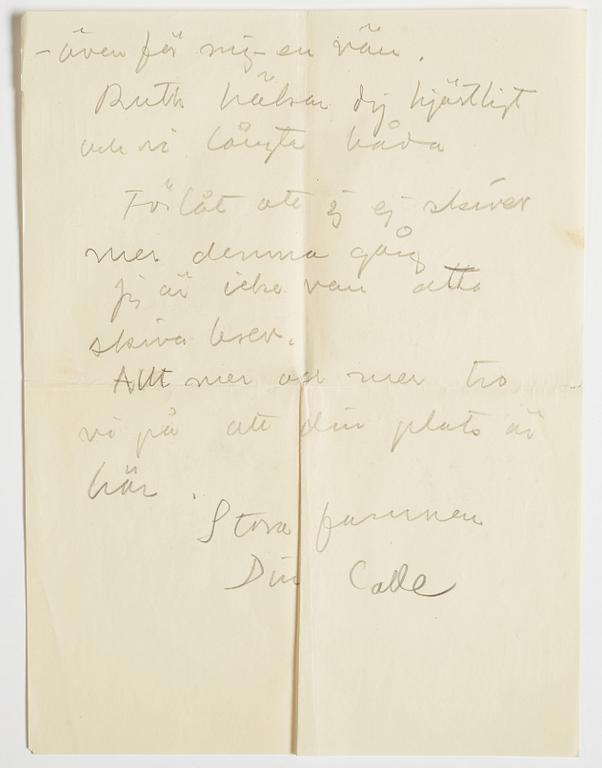 - även för mig - en vän.
Ruth hälsar dig hjärtligt
och vi längta båda
Förlåt att jg ej skiver
mer denna gång
jg är icke van att
skiva brev.
Allt mer och mer tro
vi på att din plats är
här.
Stora famnen
Din Calle